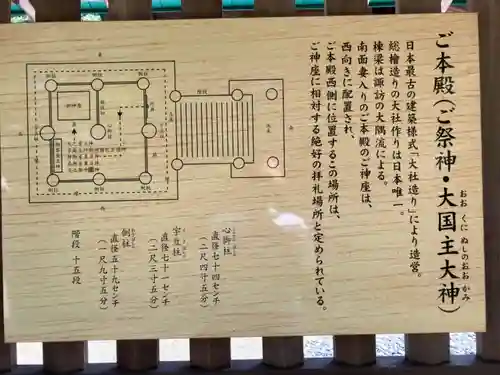 ご本殿(ご祭神・大国主大神)
おお くに ぬしの おお かみ
日本最古の建築様式「大社造り」により造営。
総檜造りの大社作りは日本唯一。
棟梁は諏訪の大隅流による。
南面妻入りのご本殿のご神座は、
西向きに配置され、
ご本殿西側に位置するこの場所は、
ご神座に相対する絶好の拝礼場所と定められている。
心御柱
直径七十四センチ
(二尺四寸五分)
宇豆柱
直径七十一センチ
(二尺三寸五分)
側柱
直径五十九センチ
(一尺九寸五分)
階段 十五段